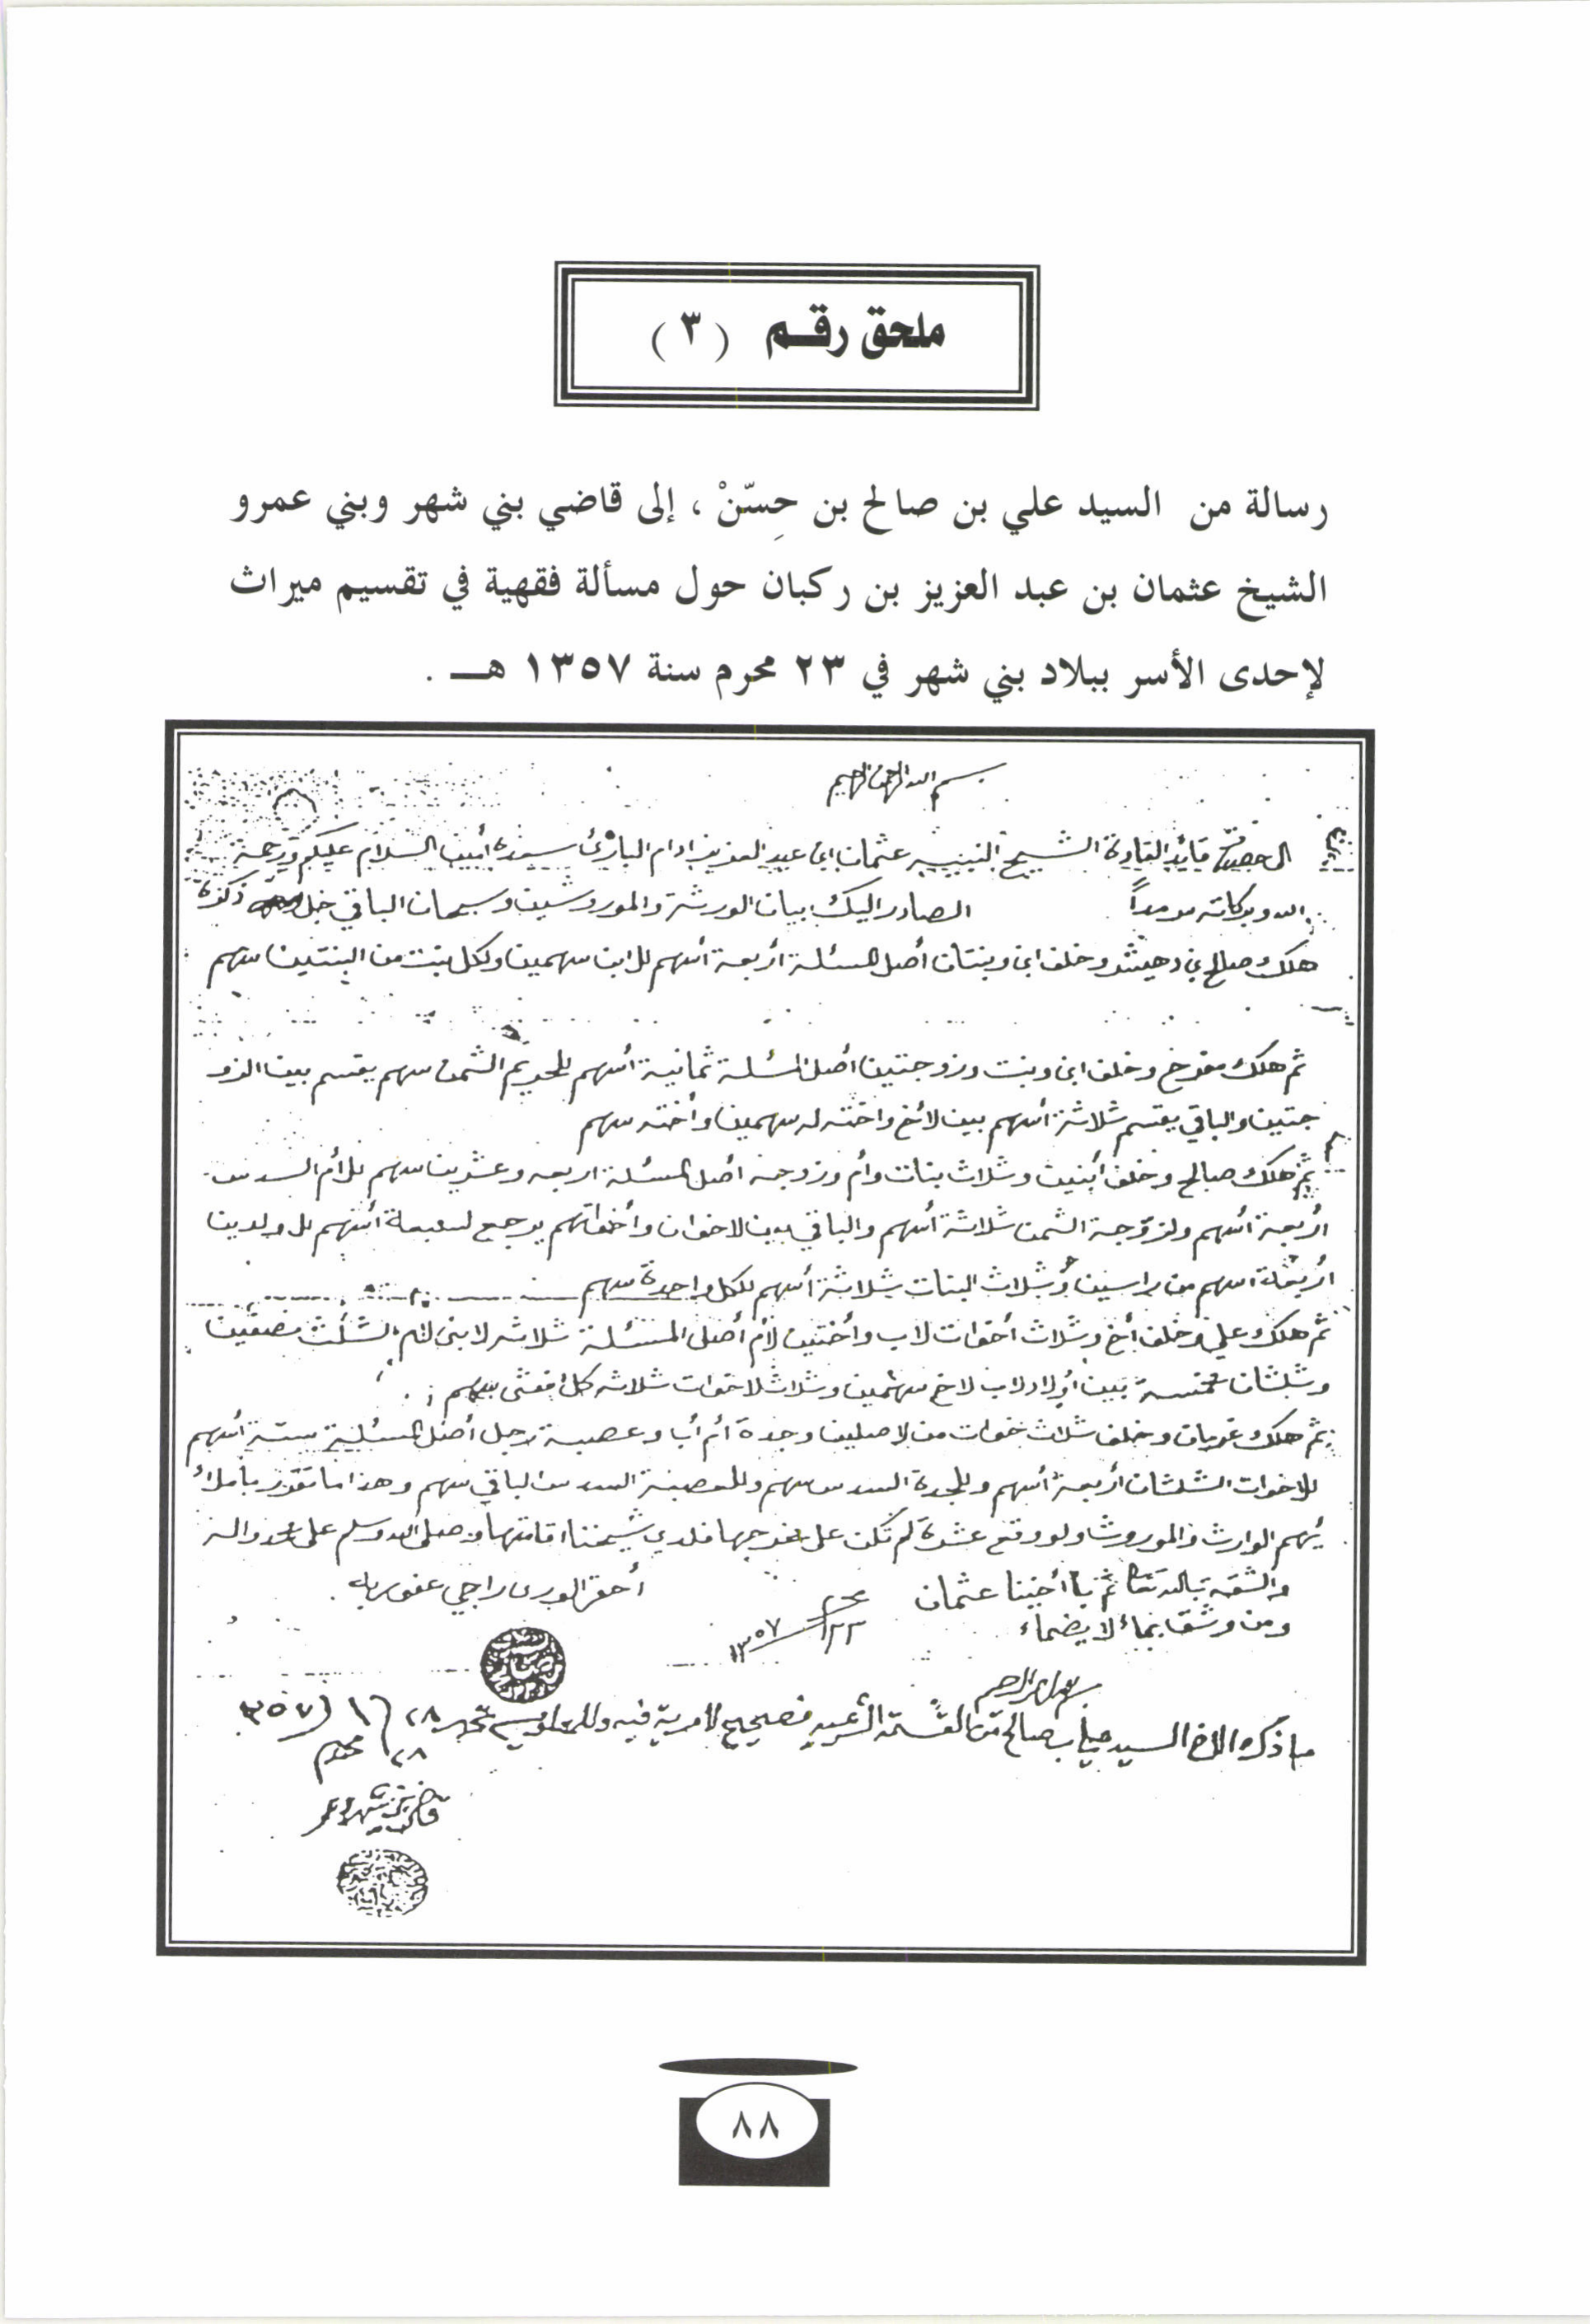 ملحق رقم (٣)
رسالة من السيد علي بن صالح بن حِسّنْ ، إلى قاضي بني شهر وبني عمرو
الشيخ عثمان بن عبد العزيز بن ركبان حول مسألة فقهية في تقسيم ميراث
لإحدى الأسر ببلاد بني شهر في ٢٣ محرم سنة ١٣٥٧ هـ .
بسم الله الرحمن الرحيم
الشيخ عثمان ابن عبد العزيز ادام البارئ السلام عليكم ورحمة
الله وبركاته سرمداً الصادر اليك بيان الورثة والموروثين وسهمان الباقي ذكره
هلك صالح بن دهيش وخلف ابن وبنتان أصل المسئلة أربعة أسهم للابن سهمين ولكل بنت من البنتين سهم
ثم هلك مفرح وخلف ابن وبنت وزوجتين أصل المسئلة ثمانية أسهم للحريم الثمن سهم يقسم بين الزو
جتين والباقي يقسم ثلاثة أسهم بين لاخ واخته له سهمين وأخته سهم
ثم هلك صالح وخلف أبنين وثلاث بنات وأم وزوجة أصل المسئلة اربعه وعشرين سهم للأم السدس
أربعة أسهم ولزوجة الثمن ثلاثة أسهم والباقي بين لاخوان وأخواتهم يرجع لسبعة أسهم للولدين
أربعة اسهم من راسين وثلاث البنات ثلاثة أسهم لكل واحدة سهم
ثم هلك علي وخلف أخ وثلاث أخوات لاب وأختين لأم أصل المسئلة ثلاثه لابنى لام الثلث نصفين
وثلثان خمسة بين أولاد لاب لاخ سهمين وثلاث لاخوات ثلاثه كل انثى سهم
ثم هلك وخلف ثلاث خوات من لاصلين وجدة أم أب وعصبة رجل أصل المسئلة ستة أسهم
للاخوات الثلثان أربعة أسهم وللجدة السدس سهم وللعصبة السدس الباقي سهم وهذا ما تقرر
الوارث والموروث ولو وقع عثرة لم تكن على فلدي شيخنا اقامتها وصلى الله وسلم على محمد واله
والثقة بالله ثم يا أخينا عثمان أحقر الورى راجي عفو ربه
ومن وثق بماء لا يضماء ٢٣ محرم ١٣٥٧
بسم الله الرحمن الرحيم
ما ذكره الاخ السيد علي بن صالح من القسمة الشرعيه فصحيح لا مرية فيه
٢٨ محرم
قاضي بني شهر
٨٨